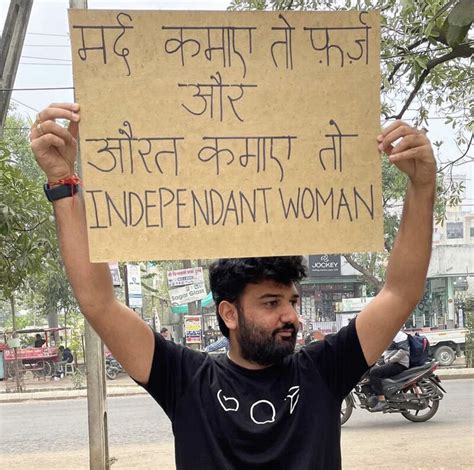 मर्द कमाए तो फ़र्ज़
और
औरत कमाए तो
INDEPENDANT WOMAN
JOCKEY